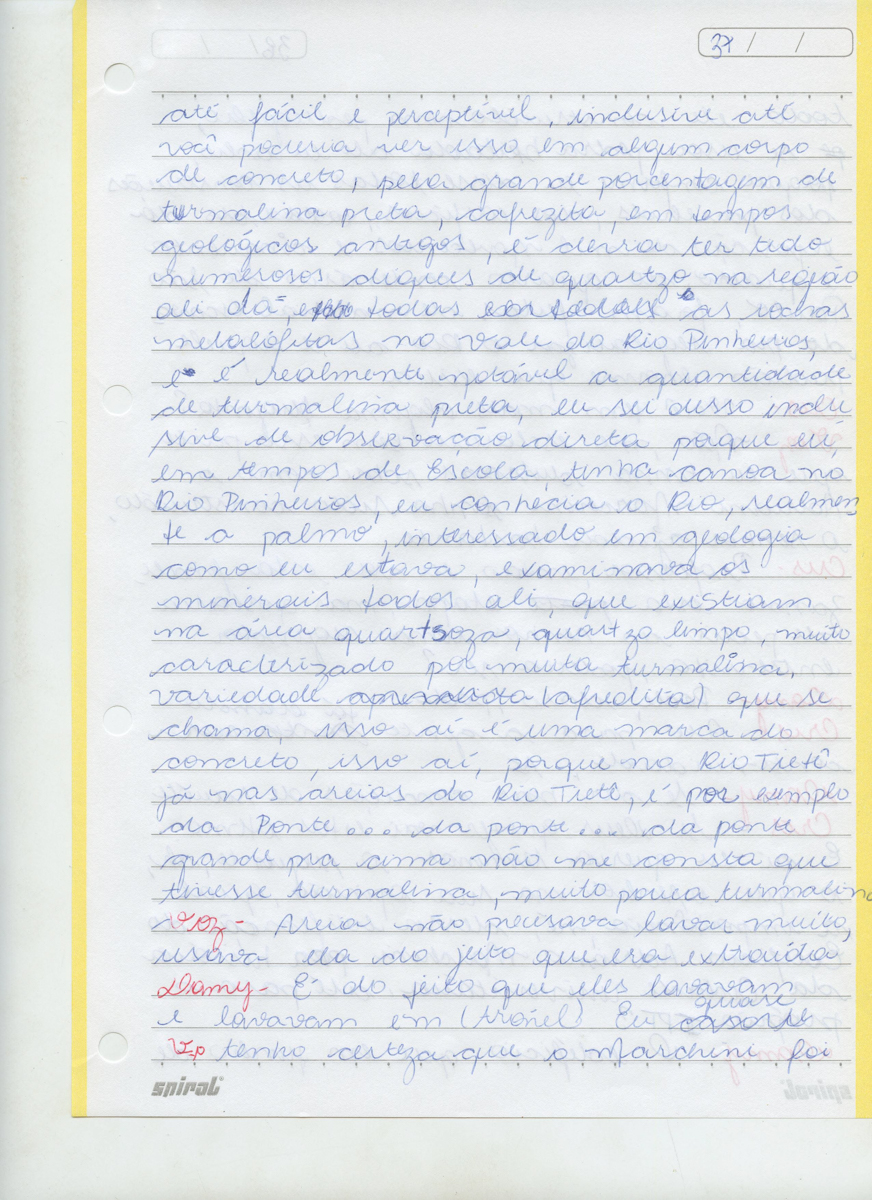 37 / /
até fácil e perceptível, inclusive até
você poderia ver isso em algum corpo
de concreto, pela grande porcentagem de
turmalina preta, cafrezita, em tempos
geológicos antigos, é devria ter tido
numerosos diques de quartzo na região
ali da, todas as rochas
melalófitas no vale do Rio Pinheiros,
e é realmente notável a quantidade
de turmalina preta, eu sei disso inclu
sive de observação direta porque eu,
em tempos de Escola, tinha canoa no
Rio Pinheiros, eu conhecia o Rio, realmen
te a palmo, interessado em geologia
como eu estava, examinava os
minerais todos ali, que existiam
na área quartsoza, quartzo limpo, muito
caracterizado por muita turmalina,
variedade (afredita) que se
chama, isso aí é uma marca do
concreto, isso aí, porque no Rio Tietê
já nas areias do Rio Tietê, é por exemplo
da Ponte... da ponte... da ponte
grande pra cima não me consta que
tivesse turmalina, muito pouca turmalina
Voz- Areia não precisava lavar muito,
usava ela do jeito que era extraída
Damy- É do jeito que eles lavavam
e lavavam em (tronel) Eu quase
tenho certeza que o Marchini foi
spiral